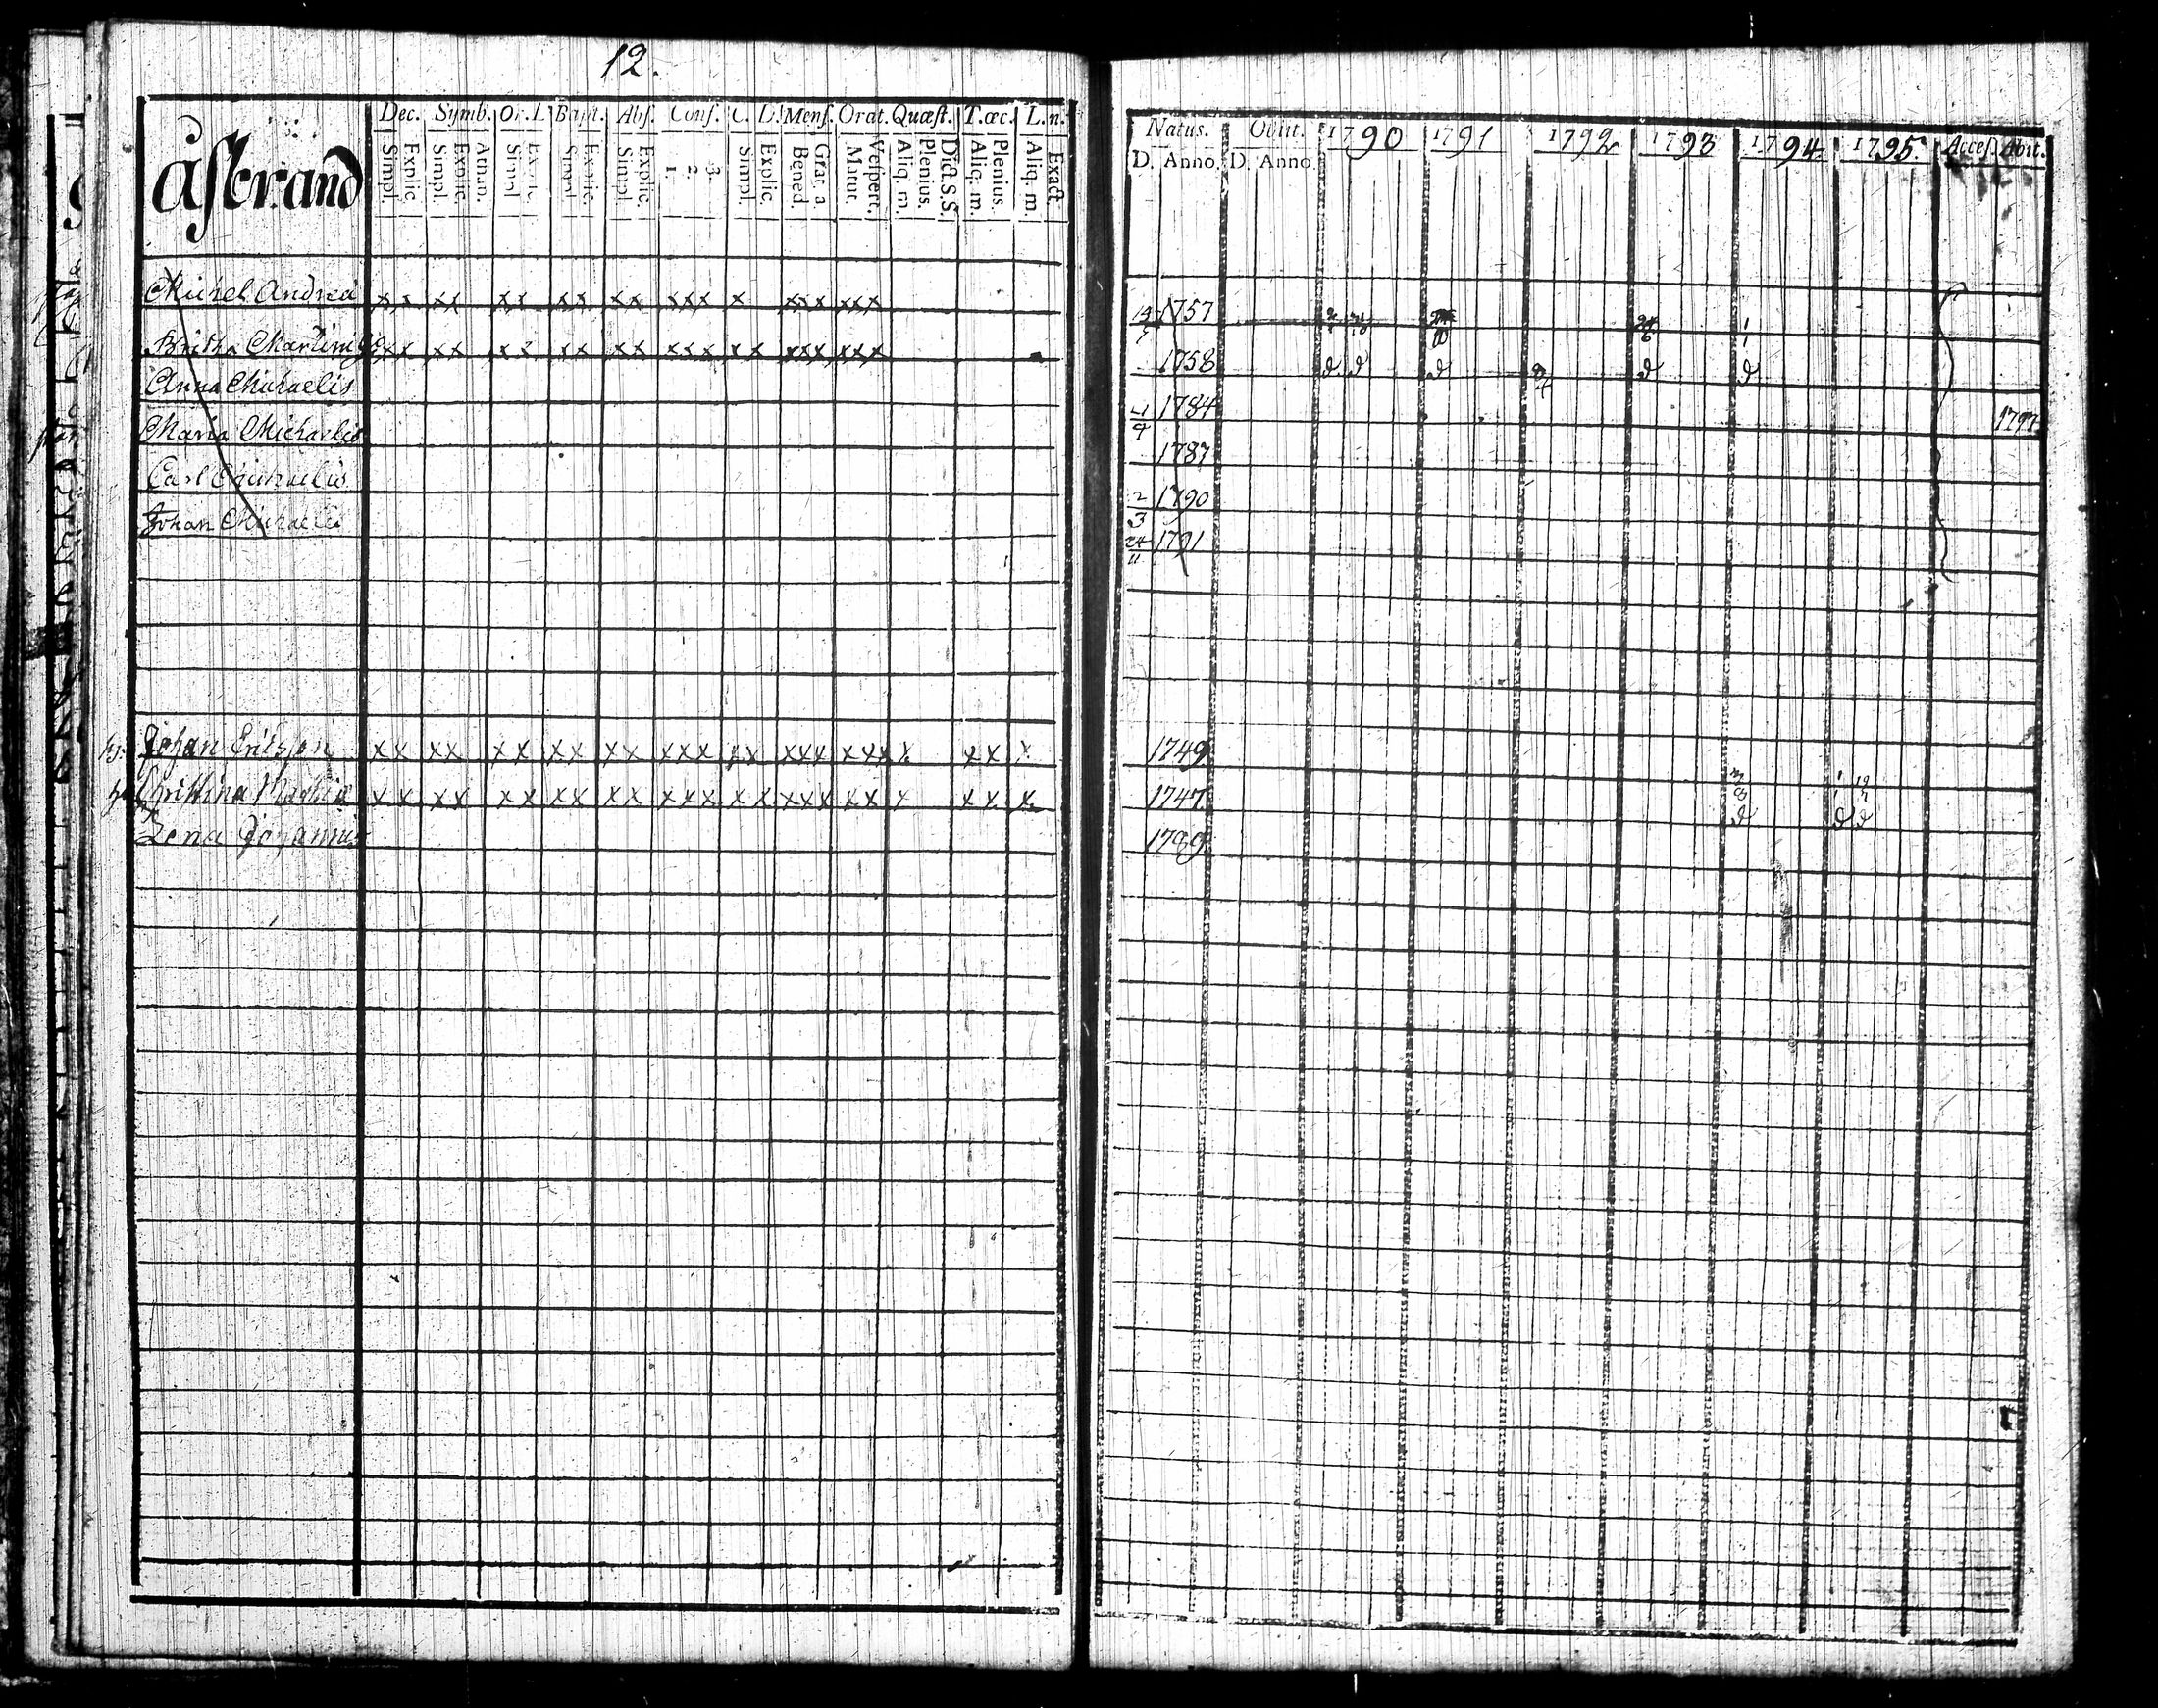 12.
Dec. Symb. Or. D Bapt. Abs. Conf. C. D. Mens. Orat. Quæst. T. œc. L. n.
Simpl. Explic. Simpl. Explic. Athan. Simpl. Explic. Simpl. Explic. Simpl. Explic. 1. 2. 3. Simpl. Explic. Bened. Grat. a. Matut. Vespert. Aliq. m. Plenius. Dict. S.S. Aliq. m. Plenius. Aliq. m. Exact.
åstrand
Michel Andreæ x x x x x x x x x x x x x x x x x x x x
Britha Martini x x x x x x x x x x x x x x x x x x x x x
Anna Michaelis
Maria Michaelis
Carl Michaelis
Johan Michaelis
Johan Ericsson x x x x x x x x x x x x x x x x x x x x x x x x x
Christina x x x x x x x x x x x x x x x x x x x x x x x x
Lena Johannis
Natus. Obiit. 1790 1791 1792 1793 1794. 1795. Acces. Abit.
D. Anno. D. Anno.
1757
1758
4/4 1784 1797.
1787
2/3 1790
24/11 1791
1749
1747.
1789